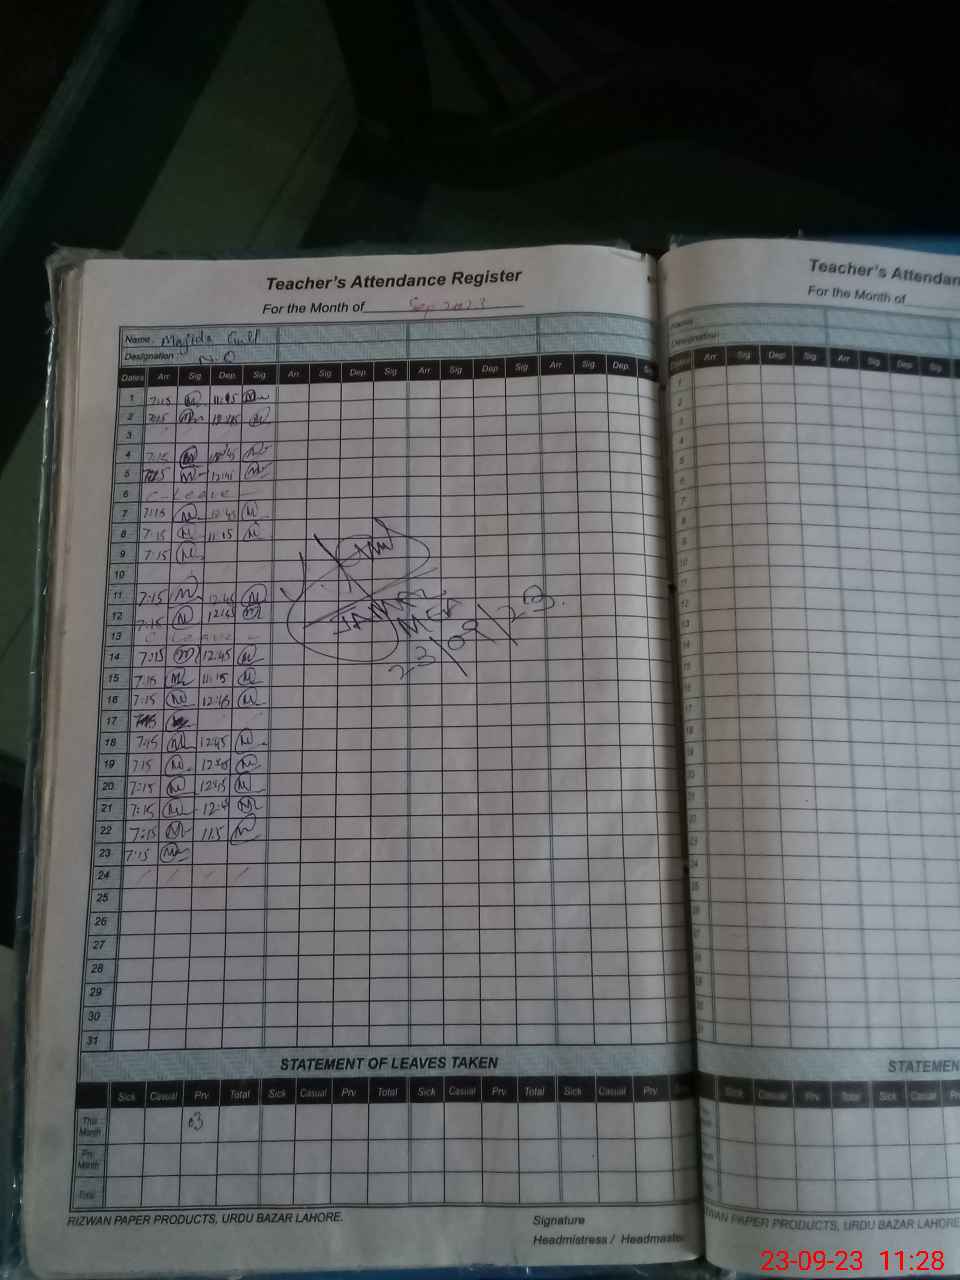 Teacher's Attendance Register
For the Month of Sep 2023
Name Majida Gull
Designation N.O
Dates Arr. Sig. Dep. Sig. Arr. Sig. Dep. Sig. Arr. Sig. Dep. Sig. Arr. Sig. Dep. Sig.
1 7:15 M 11:15 M
2 7:15 M 12:45 M
3
4 7:15 M 12:45 M
5 7:15 M 12:45 M
6 C-Leave
7 7:15 M 12:45 M
8 7:15 M 11:15 M
9 7:15 M
10
11 7:15 M 12:45 M
12 7:15 M 12:45 M
13 C Leave
14 7:15 M 12:45 M
15 7:15 M 11:15 M
16 7:15 M 12:45 M
17
18 7:15 M 12:45 M
19 7:15 M 12:45 M
20 7:15 M 12:45 M
21 7:15 M 12:4 M
22 7:15 M 11:5 M
23 7:15 M
24
25
26
27
28
29
30
31
MEA
23/09/23.
STATEMENT OF LEAVES TAKEN
Sick Casual Prv. Total Sick Casual Prv. Total Sick Casual Prv. Total Sick Casual Prv.
This Month 03
Prv. Month
Total
RIZWAN PAPER PRODUCTS, URDU BAZAR LAHORE.
Signature
Headmistress / Headmaster
Teacher's Attendan
For the Month of
Name
Designation
Dates Arr. Sig. Dep. Sig. Arr. Sig. Dep. Sig.
STATEMEN
Sick Casual Prv. Total Sick Casual
RIZWAN PAPER PRODUCTS, URDU BAZAR LAHORE
23-09-23 11:28